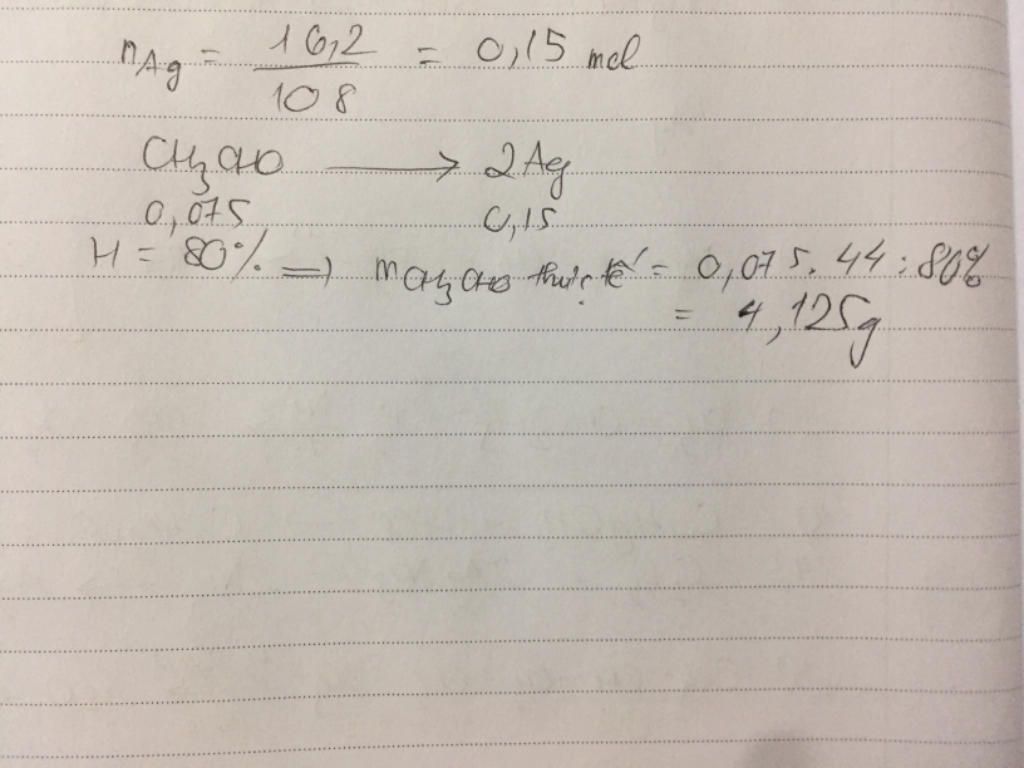 nAg = 16,2/108 = 0,15 mol
CH3CHO → 2Ag
0,075 0,15
H = 80% => mCH3CHO thực tế = 0,075.44:80%
= 4,125g